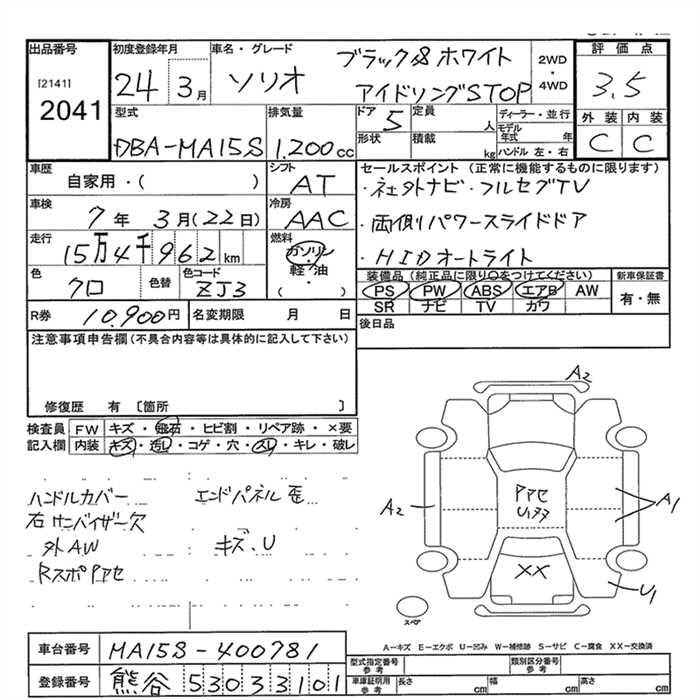 出品番号
[2141]
2041
初度登録年月
24 3月
車名・グレード
ソリオ
ブラック&ホワイト
アイドリングSTOP
2WD
・
4WD
評価点
3.5
外装 内装
C C
型式
DBA-MA15S
排気量
1.200cc
ドア
5
定員
人
形状
積載
kg
ディーラー・並行
モデル年式 年
ハンドル 左・右
車歴
自家用・( )
シフト
AT
車検
7年 3月(22日)
冷房
AAC
走行
15万4千962km
燃料
ガソリン
軽油
・( )
色
クロ
色替
色コード
ZJ3
R券
10.900円
名変期限
月 日
セールスポイント(正常に機能するものに限ります)
・社外ナビ・フルセグTV
・両側パワースライドドア
・HIDオートライト
装備品(純正品に限り○をつけてください)
PS PW ABS エアB AW
SR ナビ TV カワ
新車保証書
有・無
後日品
注意事項申告欄(不具合内容等は具体的に記入して下さい)
修復歴 有 〔箇所 〕
検査員記入欄
FW キズ・飛石・ヒビ割・リペア跡・×要
内装 キズ・汚レ・コゲ・穴・スレ・キレ・破レ
ハンドルカバー
右サンバイザー欠
外AW
RスポPアセ
エンドパネル歪
キズ、U
A2
A2
Pアセ
A1
XX
U1
スペア
A-キズ E-エクボ U-凹み W-補修跡 S-サビ C-腐食 XX-交換済
車台番号
MA15S-400781
登録番号
熊谷 530 33101
型式指定番号
参考
類別区分番号
参考
車庫証明用
参考
長さ cm
幅 cm
高さ cm